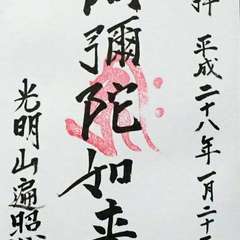 拝 平成二十八年一月二十
阿彌陀如来
光明山遍照